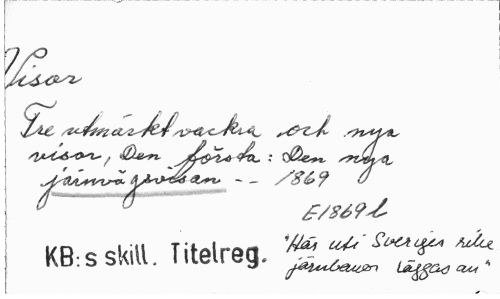 Visor
Tre utmärkt vackra och nya
visor, Den första: Den nya
järnvägsvisan -- 1869
E1869b
KB:s skill. Titelreg.
"Här uti Sveriges rike
järnbanor läggas an"